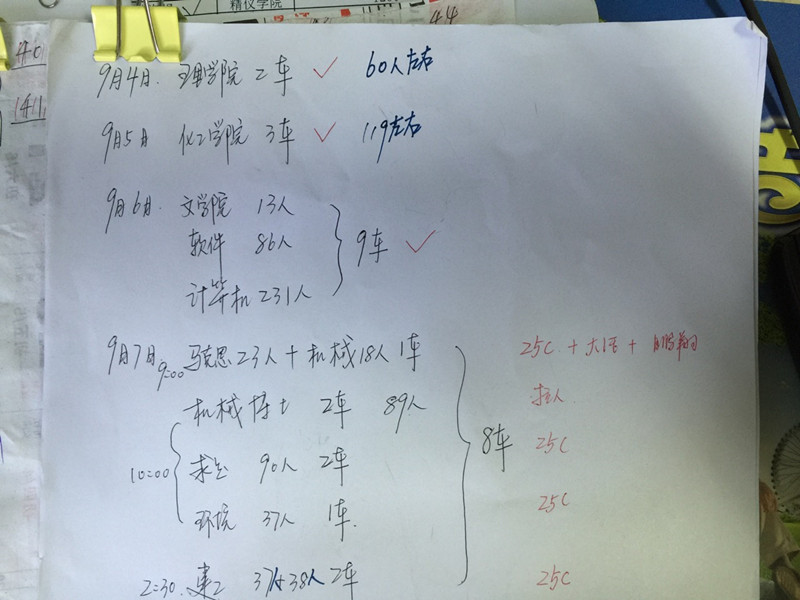 精仪学院
44
9月4日. 理学院 2车 ✓ 60人左右
9月5日 化工学院 3车 ✓ 119左右
9月6日. 文学院 13人
软件 86人
9车 ✓
计算机 231人
9月7日 9:00 马克思23人+机械18人 1车
25C + 大活 +
机械博士 2车 89人
8车
10:00
求是 90人 2车
25C
环境 37人 1车.
25C
2:30. 建工 37+38人 2车
25C